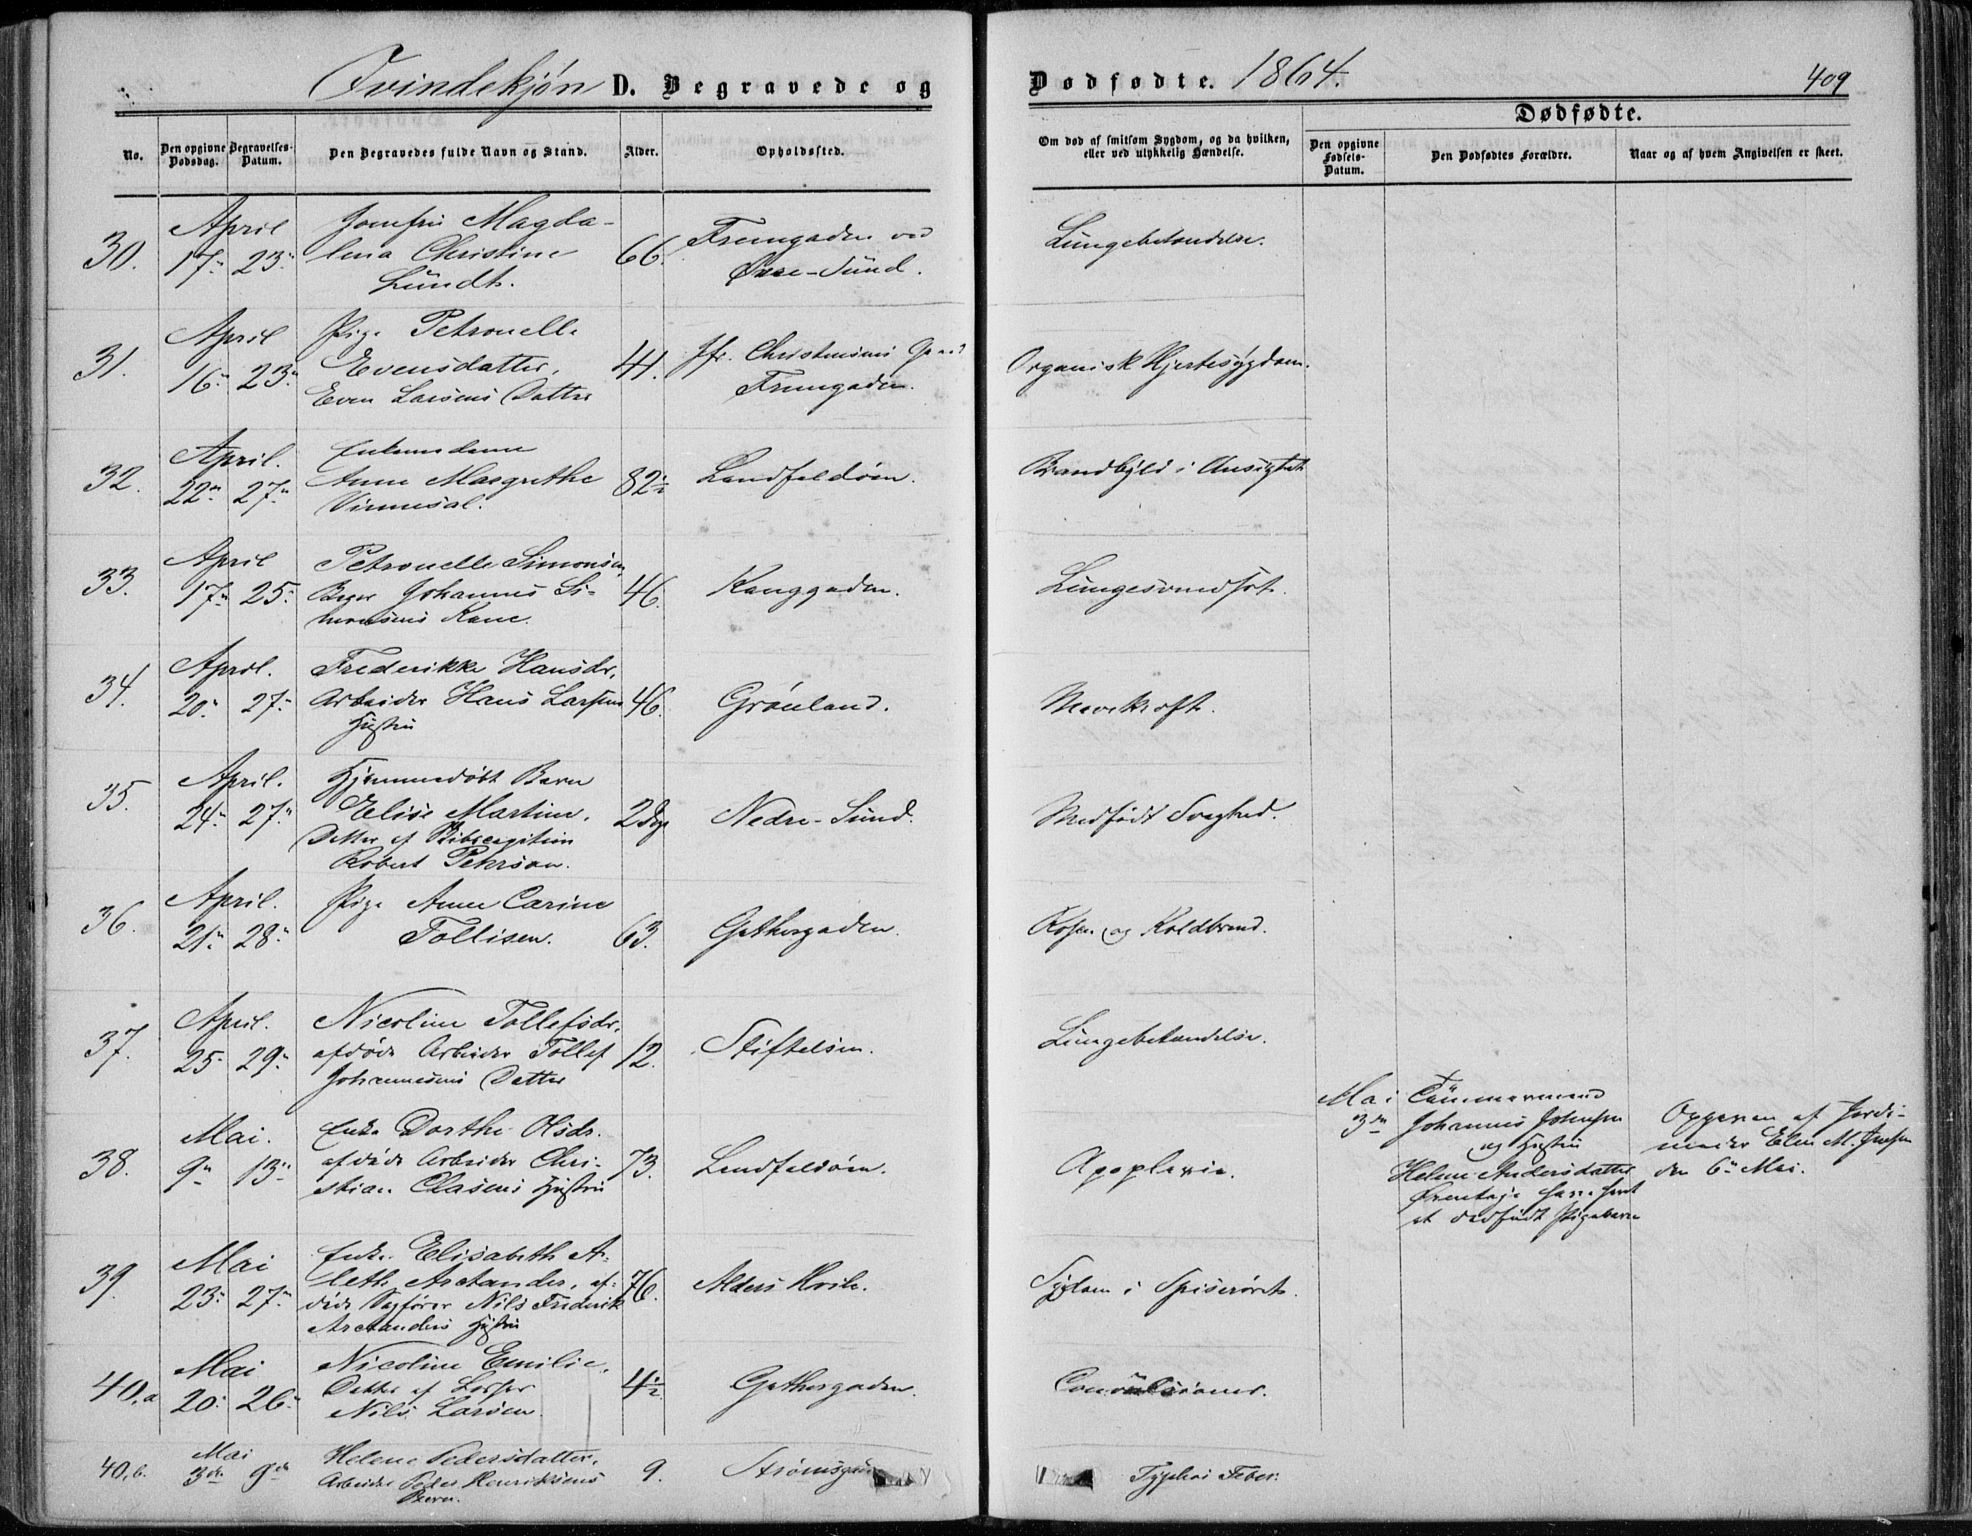 Qvindekjøn D. Begravede og
No.
Den opgivne Dødsdag.
Begravelses-Datum.
Den Begravedes fulde Navn og Stand.
Alder.
Opholdssted.
Dødfødte. 1864.
409
Om død af smitsom Sygdom, og da hvilken,
eller ved ulykkelig Hændelse.
Dødfødte.
Den opgivne
Fødsels-
Datum.
Den Dødfødtes Forældre.
Naar og af hvem Angivelsen er skeet.
30.
April
17de 23de
Jomfru Magda-
lena Christine
Lundt.
66.
Tverrgaden ved
Øvre-Sund.
Lungebetændelse.
31.
April
16de 23de
Pige Petronelle
Evensdatter,
Even Larsens Datter
41.
Jfr. Christensens Gaard
Organisk Hjertesygdom.
32.
April.
22de 27de
Anne Margrethe
82½
Landfaldøen.
Brandbyld i Ansigtet
33.
April
17de 25de
Petronelle Simonsen,
Johannes Si-
monsens Kone.
46.
Konggaden.
Lungesvindsot.
34.
April.
20de 27de
Frederikke Hansdr.
Arbeider Hans Larsens
Hustru
46.
Grønland.
Mavekræft.
35.
April.
24de 27de
Hjemmedøbt Barn
Elise Martine,
Datter af Skibscapitain
Robert Petersen.
2 Dge
Nedre-Sund.
Medfødt Svaghed.
36.
April.
21de 28de
Pige Anne Carine
Tollisen.
63.
Gethesgaden.
Rosen og Koldbrand.
37.
April.
25 29de
Nicoline Tollefsdr.
afdøde Arbeider Tollef
Johannesens Datter
12.
Stiftelsen.
Lungebetændelse.
38.
Mai.
9de 13de
Enke Dorthe Olsdr.
afdøde Arbeider Chri-
stian Clasens Hustru
73.
Landfaldøen.
Apoplexie.
Mai
3de
Tømmermand
Johannes Johnsen
og Hustru
Helene Andersdatter
et dødfødt Pigebarn
Opgaven af Jorde-
den 6te Mai.
39.
Mai
23de 27de
Enke Elisabeth A-
leth Arctander, af-
døde Sagfører Nils Frederik
Arctanders Hustru
76.
Alders Hvile.
Sygdom i Spiserøret.
40.a
Mai
20de 26de
Nicoline Emilie,
Datter af Losser
Nils Larsen.
4½
Gethesgaden.
Convulsioner.
40.b.
Mai
3de 9de
Helene Pedersdatter,
Arbeider Peder Henriksens
Barn.
9.
Typhoi Feber.